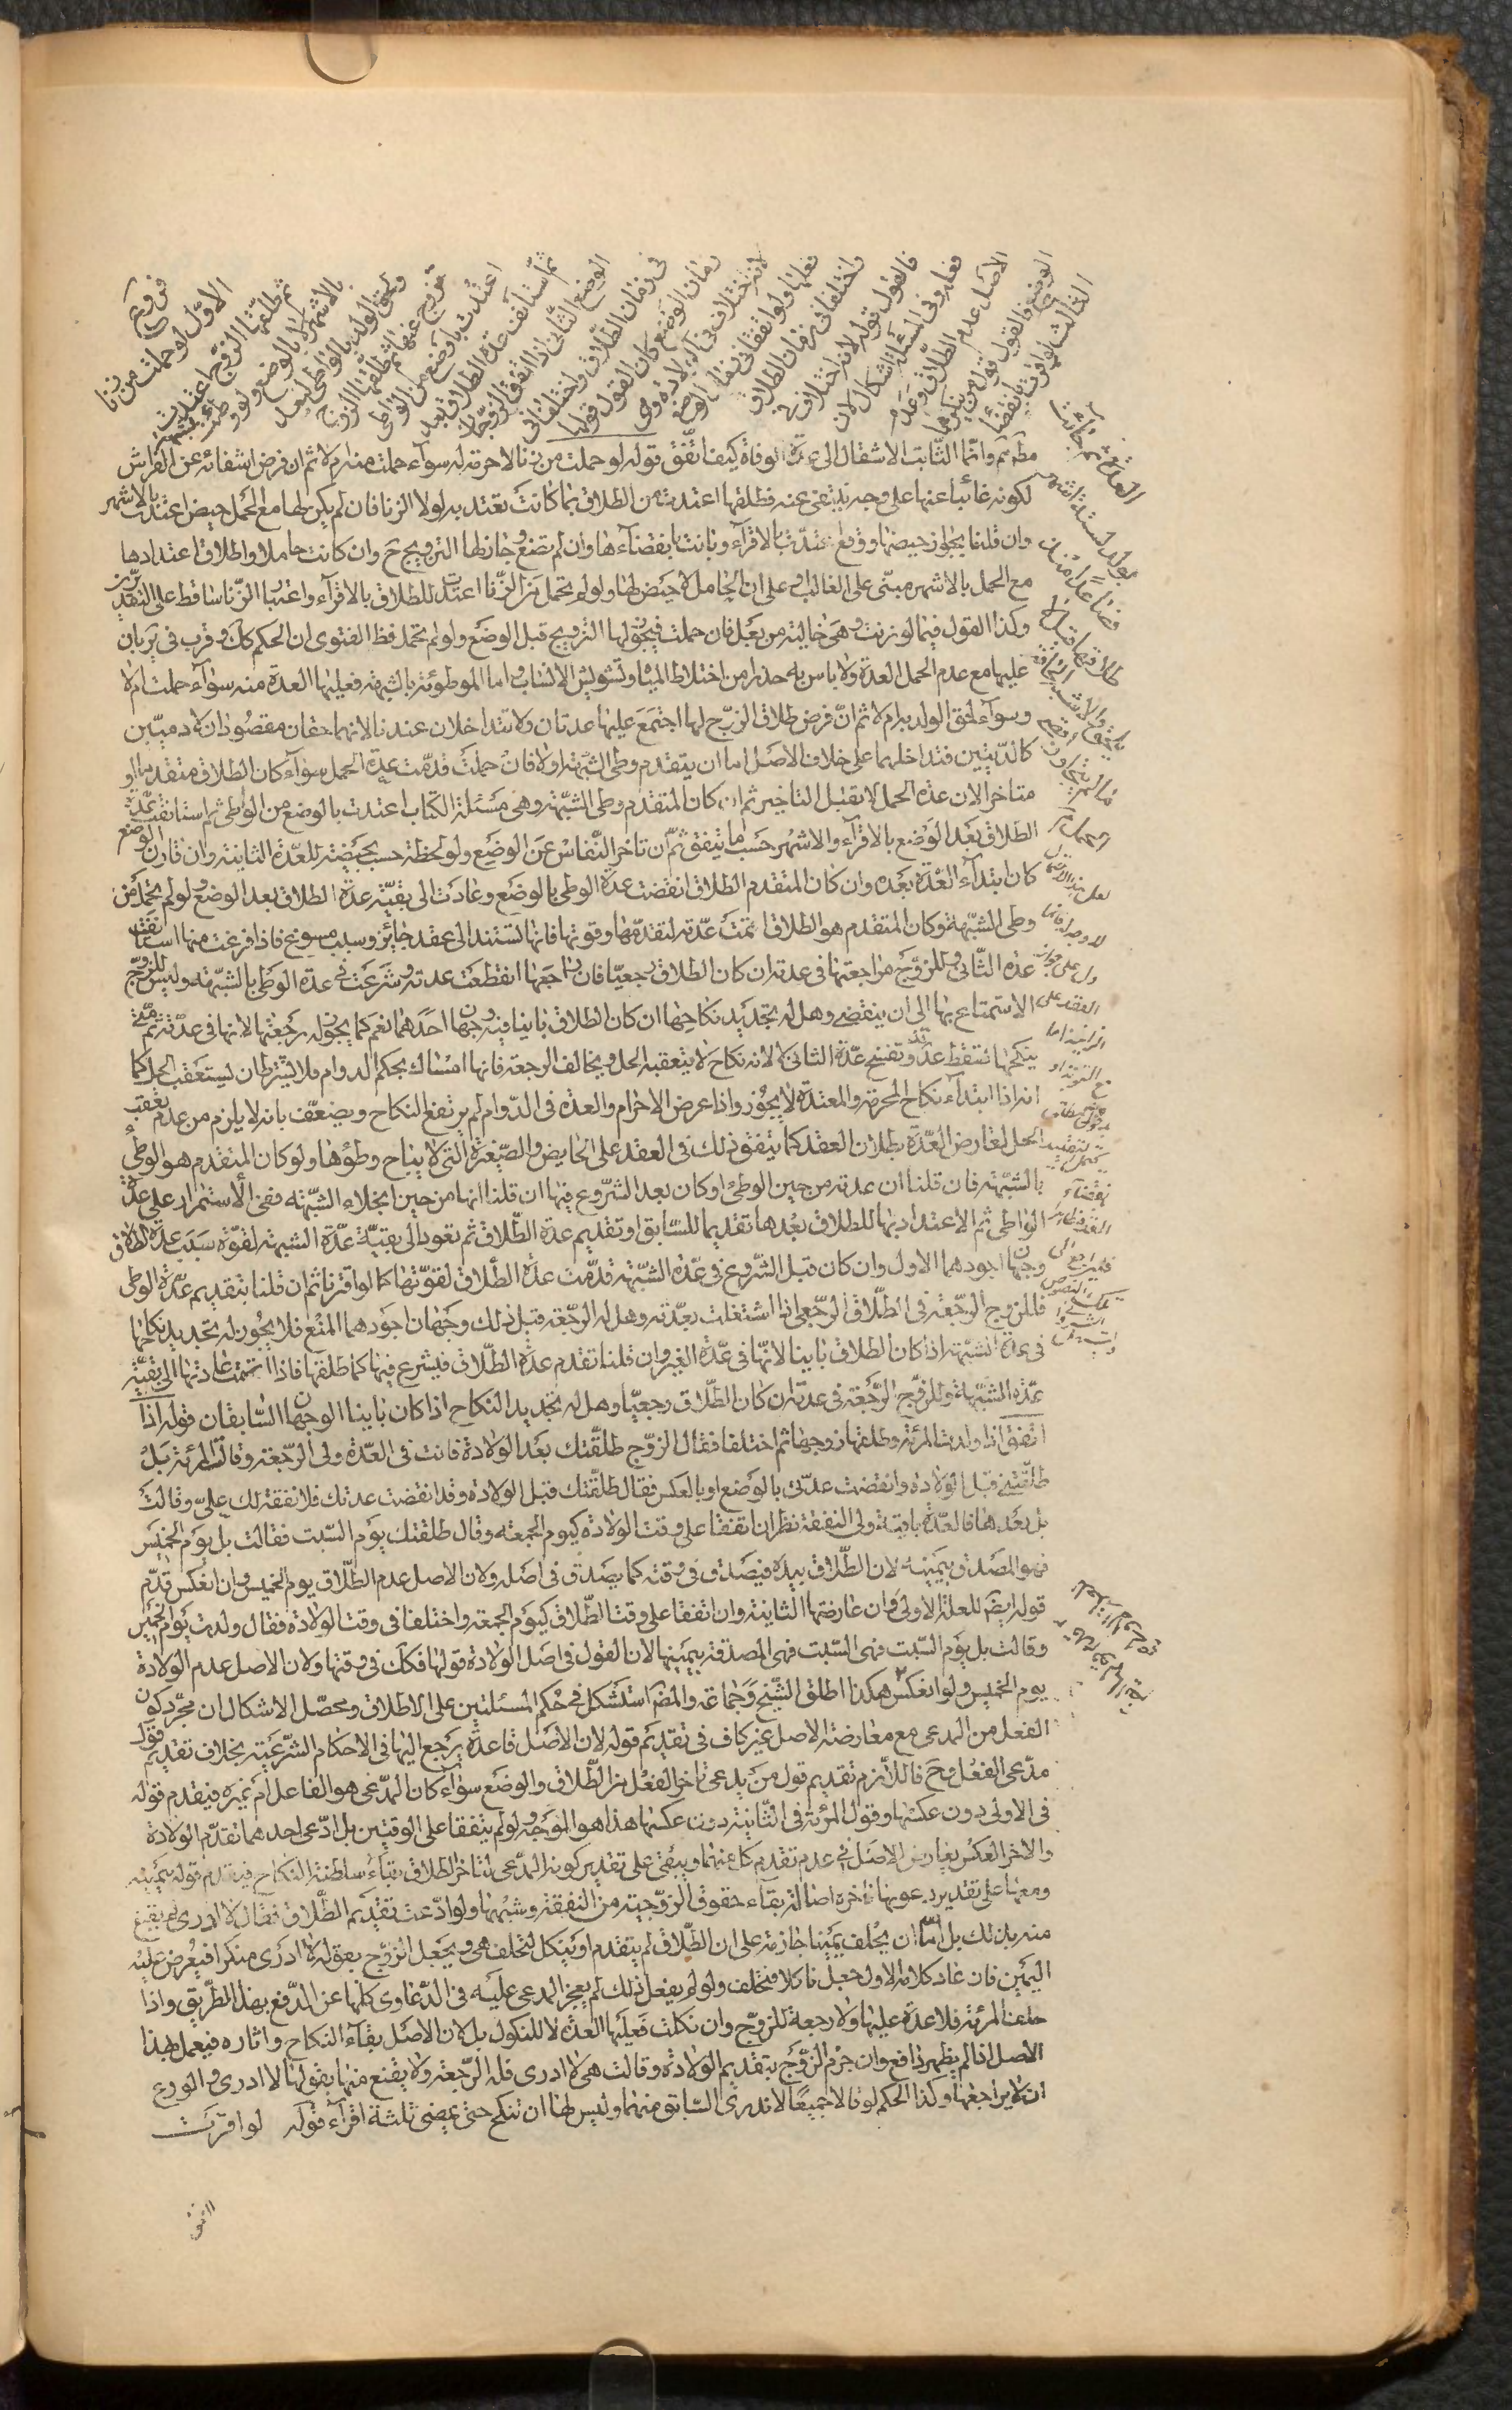 فروع
الاول لو حملت من زنا
ثم طلقها الزوج اعتدت
بالاشهر لا بالوضع ولو وطئت بشبهة
ولحق الولد بالواطي لبعد
الزوج عنها ثم طلقها الزوج
اعتدت بالوضع من الواطي
ثم استأنف عدة الطلاق بعد
الوضع الثاني اذا اتفق الزوجان
في زمان الطلاق واختلفا في
زمان الوضع كان القول قولها
لانه اختلاف في الولادة وهي
فعلها ولو اتفقا في زمان الوضع
واختلفا في زمان الطلاق
فالقول قوله لانه اختلاف في
فعله وفي المسئلتين اشكال لان
الاصل عدم الطلاق وعدم
الوضع فالقول قول من ينكرهما
الثالث لو اقرت بانقضاء
العدة ثم جائت
بولد لستة اشهر
فصاعدا منذ
طلقها قيل لا
مطهم وانما الثابت الانتقال الى عدة الوفاة كيف اتفق قوله لو حملت من زنا لا حرمة له سوآء حملت منه ام لا ثم ان فرض انتفائه عن الفراش
لكونه غائبا عنها على وجه ينتفى عنه فطلقها اعتدت من الطلاق بما كانت تعتد به لولا الزنا فان لم يكن لها مع الحمل حيض اعتدت بالاشهر
وان قلنا بجواز حيضها ووقع اعتدت بالاقرآء وبانت بانقضآءها وان لم تضع وجاز لها التزويج ح وان كانت حاملا واطلاق اعتدادها
مع الحمل بالاشهر مبنى على الغالب او على ان الحامل لا حيض لها ولو لم تحمل من الزنا اعتدت للطلاق بالاقرآء واعتبار الزنا ساقط على التقديرين
وكذا القول فيما لو زنت وهى خالية من بعل فان حملت فيجوز لها التزويج قبل الوضع ولو لم تحمل فظ الفتوى ان الحكم كك وقرب فى ير بان
عليها مع عدم الحمل العدة ولا باس به حذرا من اختلاط المياه وتشويش الانساب واما الموطوئة بالشبهة فعليها العدة منه سوآء حملت ام لا
وسوآء لحق الولد به ام لا ثم ان فرض طلاق الزوج لها اجتمع عليها عدتان ولا تتداخلان عندنا لانهما حقان مقصودان لادميين
كالديتين فتداخلهما على خلاف الاصل اما ان يتقدم وطى الشبهة اولا فان حملت قدمت عدة الحمل سوآء كان الطلاق متقدما او
متاخرا لان عدة الحمل لا تقبل التاخير ثم ان كان المتقدم وطى الشبهة وهى مسئلة الكتاب اعتدت بالوضع من الواطى ثم استانفت عدة
الطلاق بعد الوضع بالاقرآء والاشهر حسب ما يتفق ثم ان تاخر النفاس عن الوضع ولو لحظة حسب بحيضة للعدة الثانية وان قارن الوضع
كان ابتدآء العدة بعده وان كان المتقدم الطلاق انقضت عدة الوطى بالوضع وعادت الى بقية عدة الطلاق بعد الوضع ولو لم تحمل من
وطى الشبهة وكان المتقدم هو الطلاق اتمت عدته لتقدمها وقوتها فانها تستند الى عقد جائز وسبب مسوغ فاذا فرغت منها استانفت
عدة الثانى وللزوج مراجعتها فى عدته ان كان الطلاق رجعيا فان راجعها انقطعت عدته وشرعت فى عدة الوطى بالشبهة وليس للزوج
الاستمتاع بها الى ان ينقضى وهل له تجديد نكاحها ان كان الطلاق باينا فيه وجهان احدهما نعم كما يجوز له رجعتها لانها فى عدته ثم متى
ينكحها تسقط عدته وتفتتح عدة الثانى لا لانه نكاح لا يتعقبه الحل ويخالف الرجعة فانها امساك بحكم الدوام فلا يشترط ان يستعقب الحل كما
انه اذا ابتدآء نكاح المحرمة والمعتدة لا يجوز واذا عرض الاحرام والعدة فى الدوام لم يرتفع النكاح ويضعف بانه لا يلزم من عدم تعقب
الحل لعارض العدة بطلان العقد كما يتفق ذلك فى العقد على الحايض والصغيرة التى لا يباح وطؤها ولو كان المتقدم هو الوطى
بالشبهة فان قلنا ان عدته من حين الوطى او كان بعد الشروع فيها ان قلنا انها من حين انجلاء الشبهة ففى الاستمرار على عدة
الواطى ثم الاعتداد بها للطلاق بعدها تقديما للسابق او تقديم عدة الطلاق ثم تعود الى بقية عدة الشبهة لقوة سبب عدة الطلاق
وجهان اجودهما الاول وان كان قبل الشروع فى عدة الشبهة قدمت عدة الطلاق لقوتها كما لو اقترنا ثم ان قلنا بتقديم عدة الوطى
فللزوج الرجعة فى الطلاق الرجعى اذا اشتغلت بعدته وهل له الرجعة قبل ذلك وجهان اجودهما المنع فلا يجوز له تجديد نكاحها
فى عدة الشبهة اذا كان الطلاق باينا لانها فى عدة الغير وان قلنا تقدم عدة الطلاق فيشرع فيها كما طلقها فاذا اتممت عادتها الى بقية
عدة الشبهة وللزوج الرجعة فى عدته ان كان الطلاق رجعيا وهل له تجديد النكاح اذا كان باينا الوجهان السابقان قوله اذا
اتفق اذا ولدت المرئة وطلقها زوجها ثم اختلفا فقال الزوج طلقتك بعد الولادة فانت فى العدة ولى الرجعة وقالت المرئة بل
طلقتنى قبل الولادة وانقضت عدتى بالوضع او بالعكس فقال طلقتك قبل الولادة وقد انقضت عدتك فلا نفقة لك على وقالت
بل بعدها فالعدة باقية ولى النفقة نظر ان اتفقا على وقت الولادة كيوم الجمعة وقال طلقتك يوم السبت فقالت بل يوم الخميس
فهو المصدق بيمينه لان الطلاق بيده فيصدق فى وقته كما يصدق فى اصله ولان الاصل عدم الطلاق يوم الخميس وان انعكس قدم
قوله ايضا للعلة الاولى وان عارضتها الثانية وان اتفقا على وقت الطلاق كيوم الجمعة واختلفا فى وقت الولادة فقال ولدت يوم الخميس
وقالت بل يوم السبت فهى السبت فهى المصدقة بيمينها لان القول فى اصل الولادة قولها فكك فى وقتها ولان الاصل عدم الولادة
يوم الخميس ولو انعكس هكذا اطلق الشيخ وجماعة والمصم استشكل فى حكم المسئلتين على الاطلاق ومحصل الاشكال ان مجرد كون
الفعل من المدعى مع معارضة الاصل غير كاف فى تقديم قوله لان الاصل قاعدة يرجع اليها فى الاحكام الشرعية بخلاف تقديم قول
مدعى الفعل وح فاللازم تقديم قول من يدعى تاخر الفعل من الطلاق والوضع سوآء كان المدعى هو الفاعل ام غيره فيقدم قوله
فى الاولى دون عكسها وقول المرئة فى الثانية دون عكسها هذا هو الموجه ولو لم يتفقا على الوقتين بل ادعى احدهما تقدم الولادة
والاخر العكس يعارض الاصل فى عدم تقدم كل منهما ويبقى على تقدير كونه المدعى لتاخر الطلاق بقاء سلطنة النكاح فيقدم قوله بيمينه
ومعها على تقدير دعويها تاخره اصالة بقآء حقوق الزوجية من النفقة وشبهها ولو ادعت تقديم الطلاق فقال لا ادرى لم يقنع
منه بذلك بل اما ان يحلف يمينا جازمة على ان الطلاق لم يتقدم او ينكل لتحلف هى ويجعل الزوج بقوله لا ادرى منكرا فيعرض عليه
اليمين فان عاد كلامه الاول جعل ناكلا فتحلف ولو لم يفعل ذلك لم يعجز المدعى عليه فى الدعاوى كلها عن الدفع بهذا الطريق واذا
حلفت المرئة فلا عدة عليها ولا رجعة للزوج وان نكلت فعليها العدة لا للنكول بل لان الاصل بقآء النكاح واثاره فيعمل بهذا
الاصل اذا لم يظهر دافع وان جزم الزوج بتقديم الولادة وقالت هى لا ادرى فله الرجعة ولا يقنع منها بقولها لا ادرى والورع
ان لا يراجعها وكذا الحكم لو قالا جميعا لا ندرى السابق منهما وليس لها ان تنكح حتى يمضى ثلثة اقرآء قوله لو اقرت